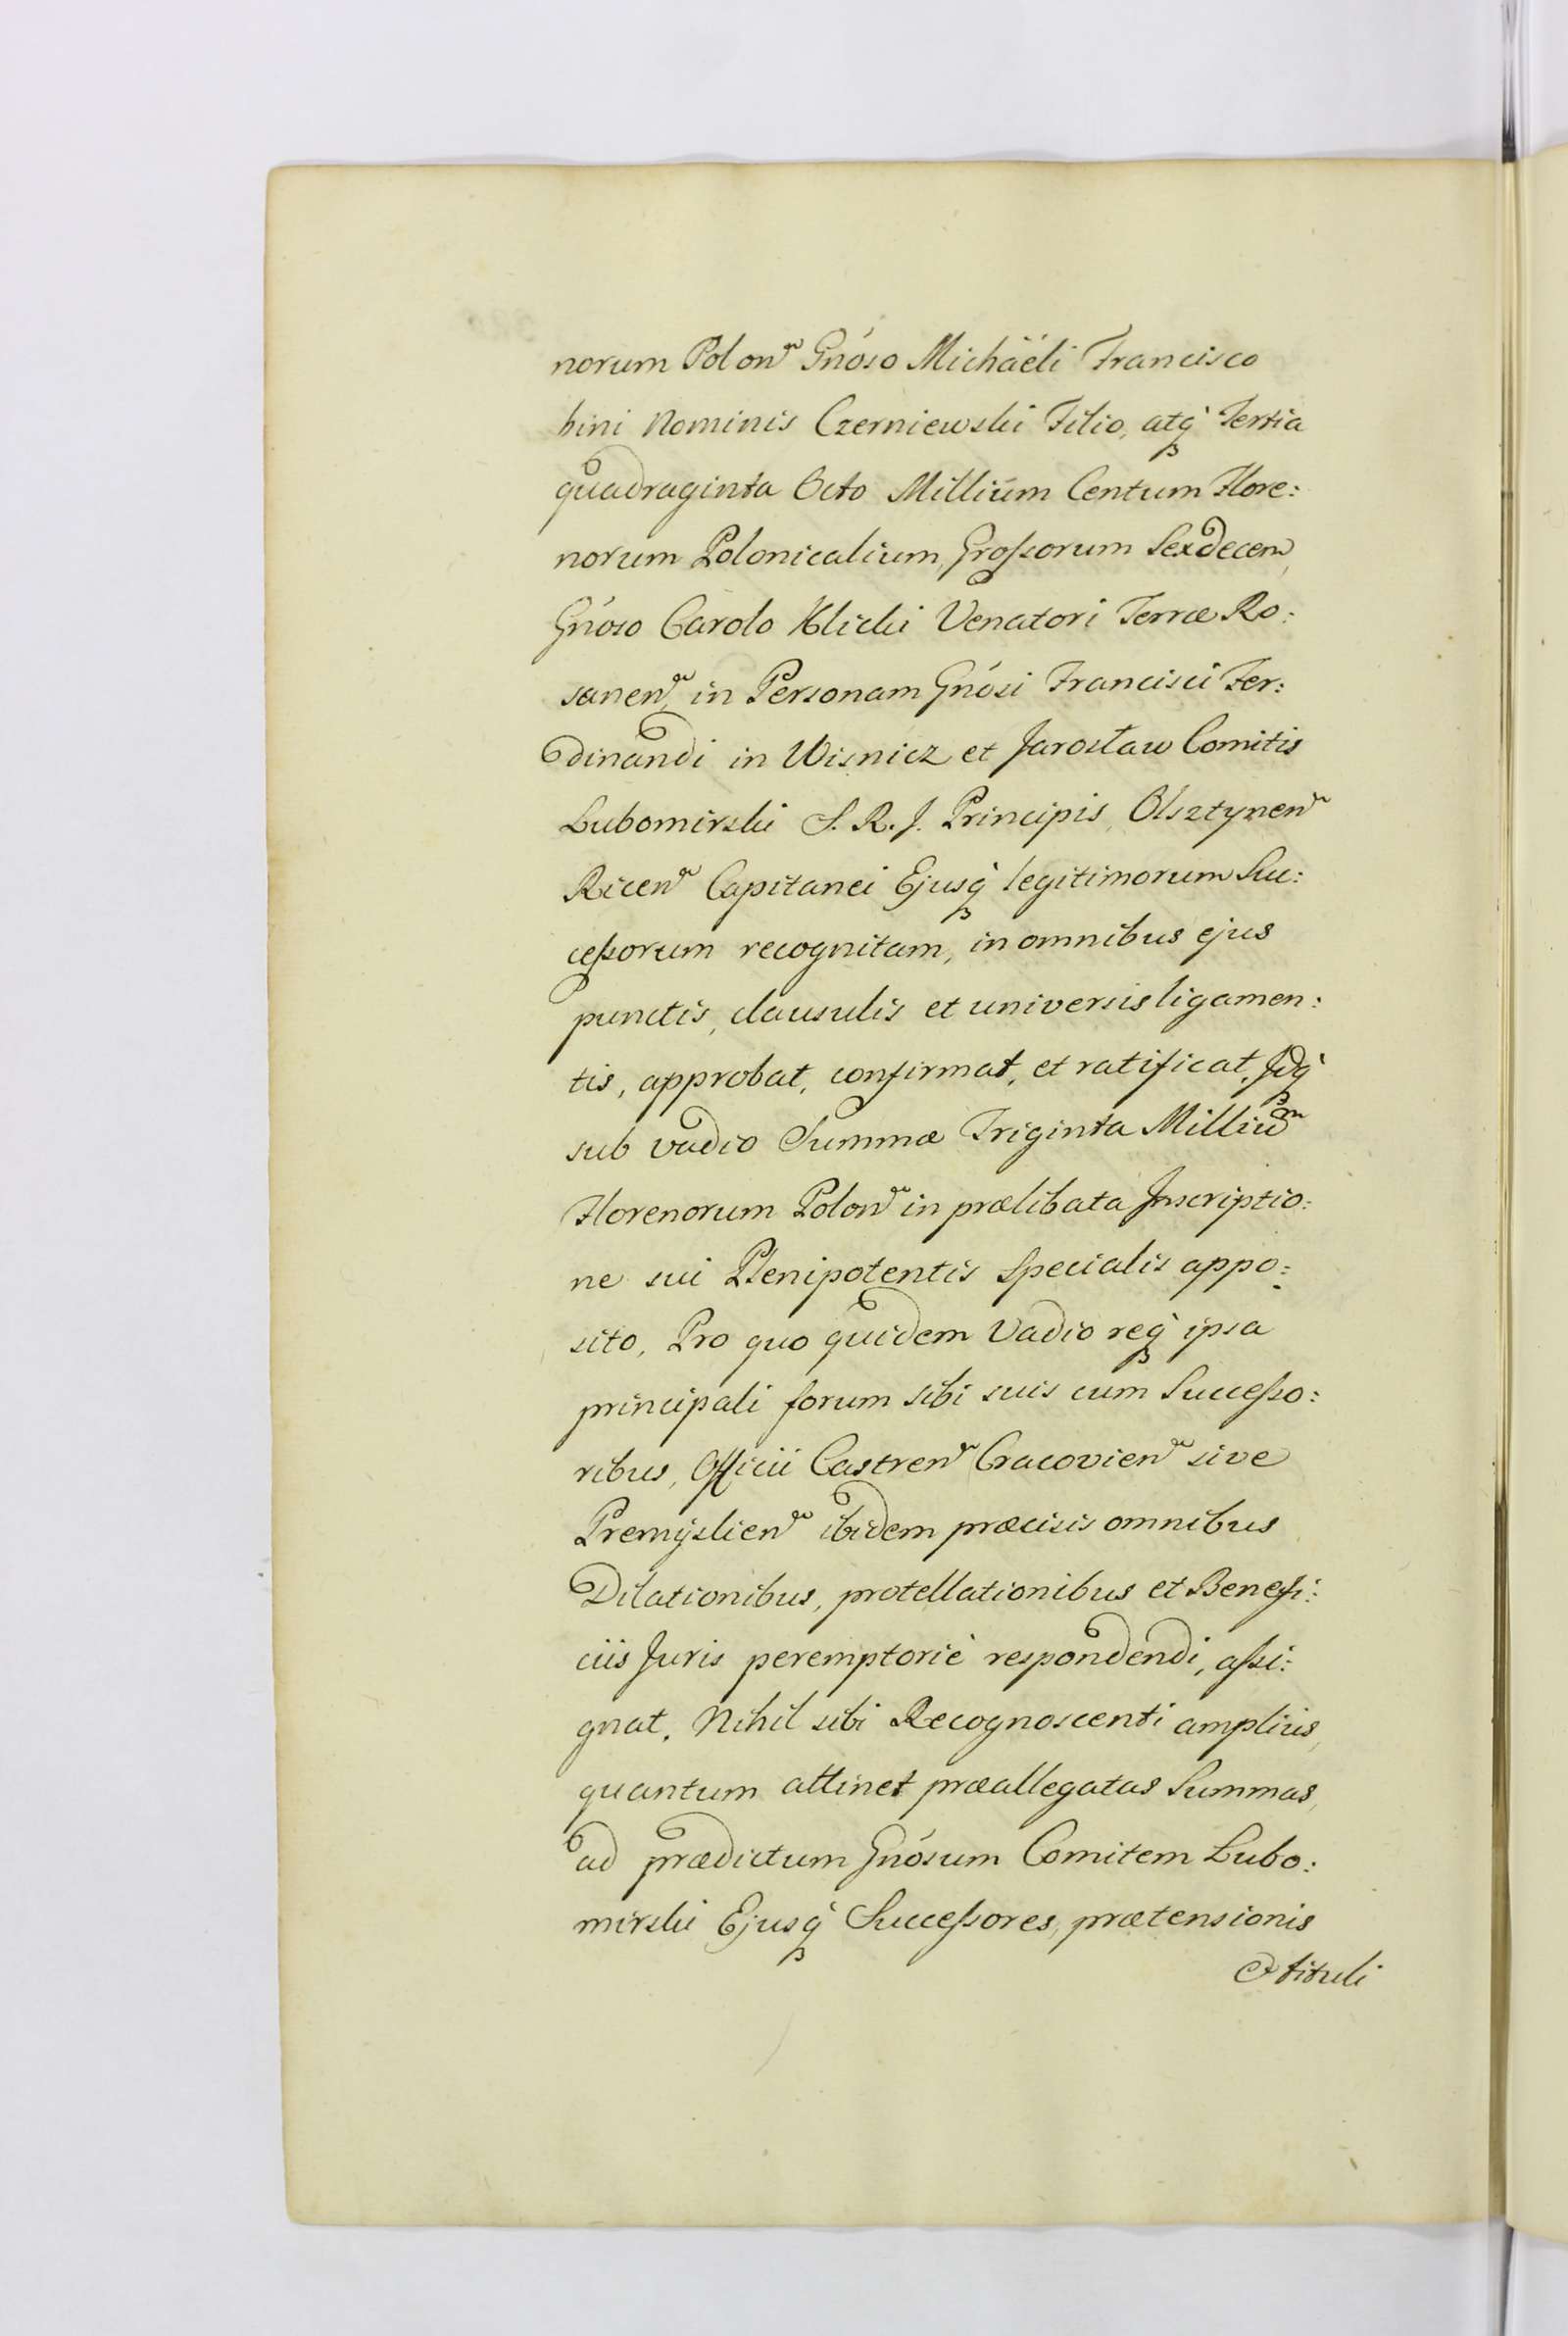 norum Polon̄ Gnóso Michäéli Francisco
bini Nominis Czerniewski Filio, atq̀ Tertia
quadraginta Octo Milliúm Centum Flore:
norum Polonicalium, Groſsorum Sexdecem,
Gnóso Carolo Klicki Venatori Terræ Ro:
sanen̄, in Personam Gnósi Francisci Fer:
dinandi in Wisnicz et Jarosław Comitis
Lubomirski S. R. J. Principis, Olsztynen̄
Ricen̄ Capitanei Ejusq̀ legitimorum Suc:
ceſsorum recognitam, in omnibus ejus
punctis, clausulis et universis ligamen:
tis, approbat, confirmat, et ratificat, Jdq̀
sub vadio Summæ Triginta Millium
Florenorum Polon̄ in prælibata Jnscriptio:
ne sui Plenipotentis Specialis appo:
sito, Pro quo quidem Vadio req̀ ipsa
principali forum sibi suis cum Succeſso:
ribus, Officii Castren̄ Cracovien̄ sive
Premÿslien̄ ibidem præcisis omnibus
Dilationibus, protellationibus et Benefi:
ciis Juris peremptoriè respondendi, aſsi:
gnat. Nihil sibi Recognoscenti ampliús,
quantum attinet præallegatas Summas,
ad prædictum Gnósum Comitem Lubo:
mirski Ejusq̀ Succeſsores, prætensionis
et tituli